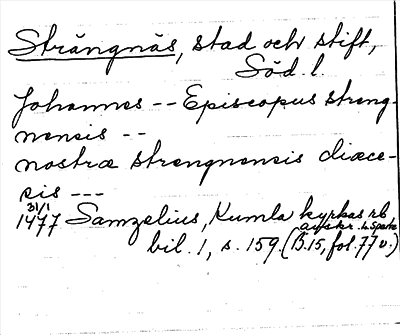 Strängnäs, stad och stift,
Söd. l.
Johannes -- Episcopus streng-
nensis --
nostræ strengnensis diæce-
sis ---
31/1
1477 Samzelius, Kumla kyrkas rb
avskr. L. Sparke
bil. 1, s. 159. (B.15, fol. 77 v.)